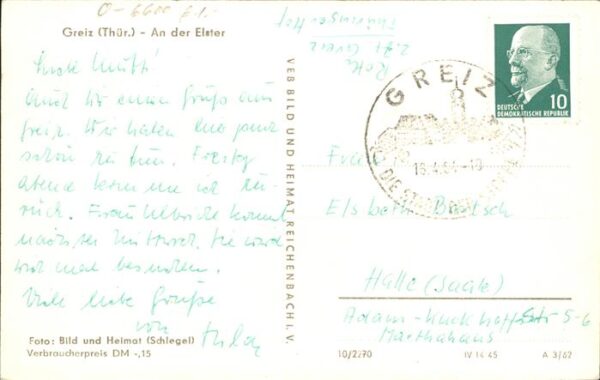 O-6600 61.-
Greiz (Thür.) - An der Elster
Mutti!
Auch Dir einen Gruß aus
Greiz. Wir haben hier ganz
schön zu tun. Freitag
abend komme ich zu-
rück. Frau
nächsten Mittwoch. Sie wird
Viele liebe Grüße
von Hilde
Foto: Bild und Heimat (Schlegel)
Verbraucherpreis DM -,15
VEB BILD UND HEIMAT REICHENBACH I. V.
z. Zt. Greiz
Thüringer Hof
GREIZ
DIE
DEUTSCHE
DEMOKRATISCHE REPUBLIK
10
Elsbeth
Halle (Saale)
Adam-Kuckhoff-Str. 5-6
Marthahaus
10/2270
IV 14 45
A 3/62